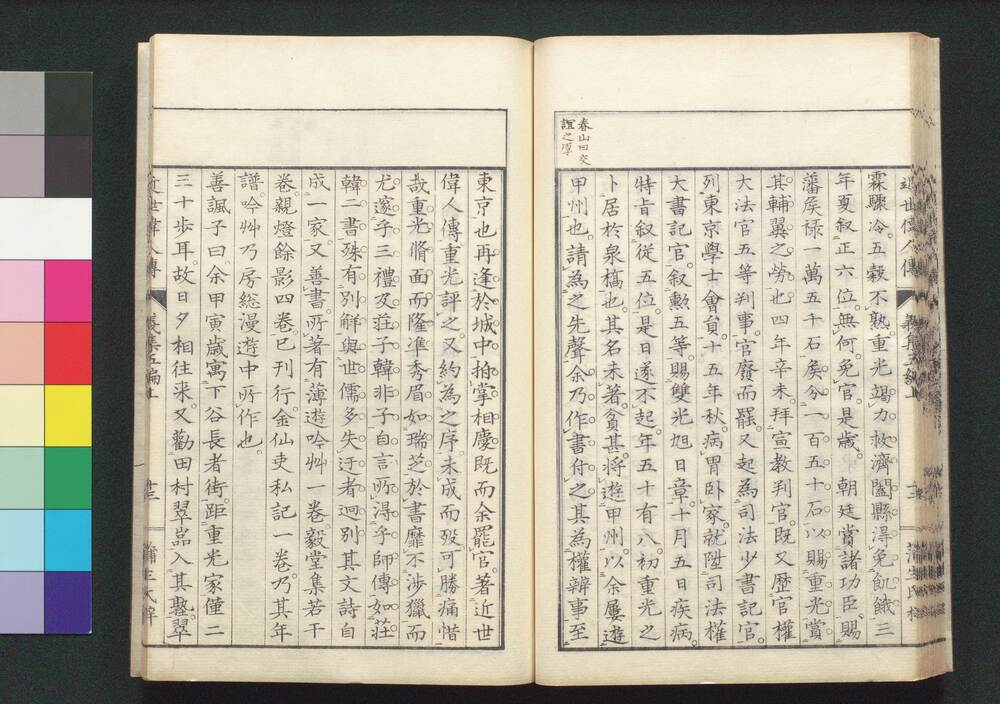 春山曰交
誼之厚
霖驟冷。五穀不熟。重光竭力救濟。闔縣得免飢餓。三
年夏叙正六位。無何免官。是歲。朝廷賞諸功臣。賜
藩矦祿一萬五千石矣。分一百五十石以賜重光。賞
其輔翼之勞也。四年辛未。拜宣教判官。既又歷官權
大法官五等判事。官廢而罷。又起為司法少書記官。
列東京學士會員。十五年秋。病胃臥家。就陞司法權
大書記官。叙勲五等。賜雙光旭日章。十月五日疾病。
特旨叙從五位。是日遂不起。年五十有八。初重光之
卜居於泉橋也。其名未著。貧甚。將遊甲州。以余屢遊
甲州也。請為之先聲。余乃作書付之。其為權辨事至
東京也。再逢於城中。拍掌相慶。既而余罷官。著近世
偉人傳。重光評之。又約為之序。未成而歿。可勝痛惜
哉。重光脩面而隆準。秀眉如瑞芝。於書靡不涉獵。而
尤邃乎三禮及荘子韓非子。自言所得乎師傳。如荘
韓二書。殊有別觧。與世儒多失迂者迥別。其文詩自
成一家。又善書。所著有薄遊吟艸一卷。毅堂集若干
卷。親燈餘影四卷。已刊行。金仙吏私記一卷。乃其年
譜。吟艸乃房総漫遊中所作也。
善諷子曰。余甲寅歲寓下谷長者街。距重光家僅二
三十歩耳。故日夕相往来。又勸田村翠嵒入其塾。翠
近世偉人傳
義集五編上
十三
蒲生氏梓